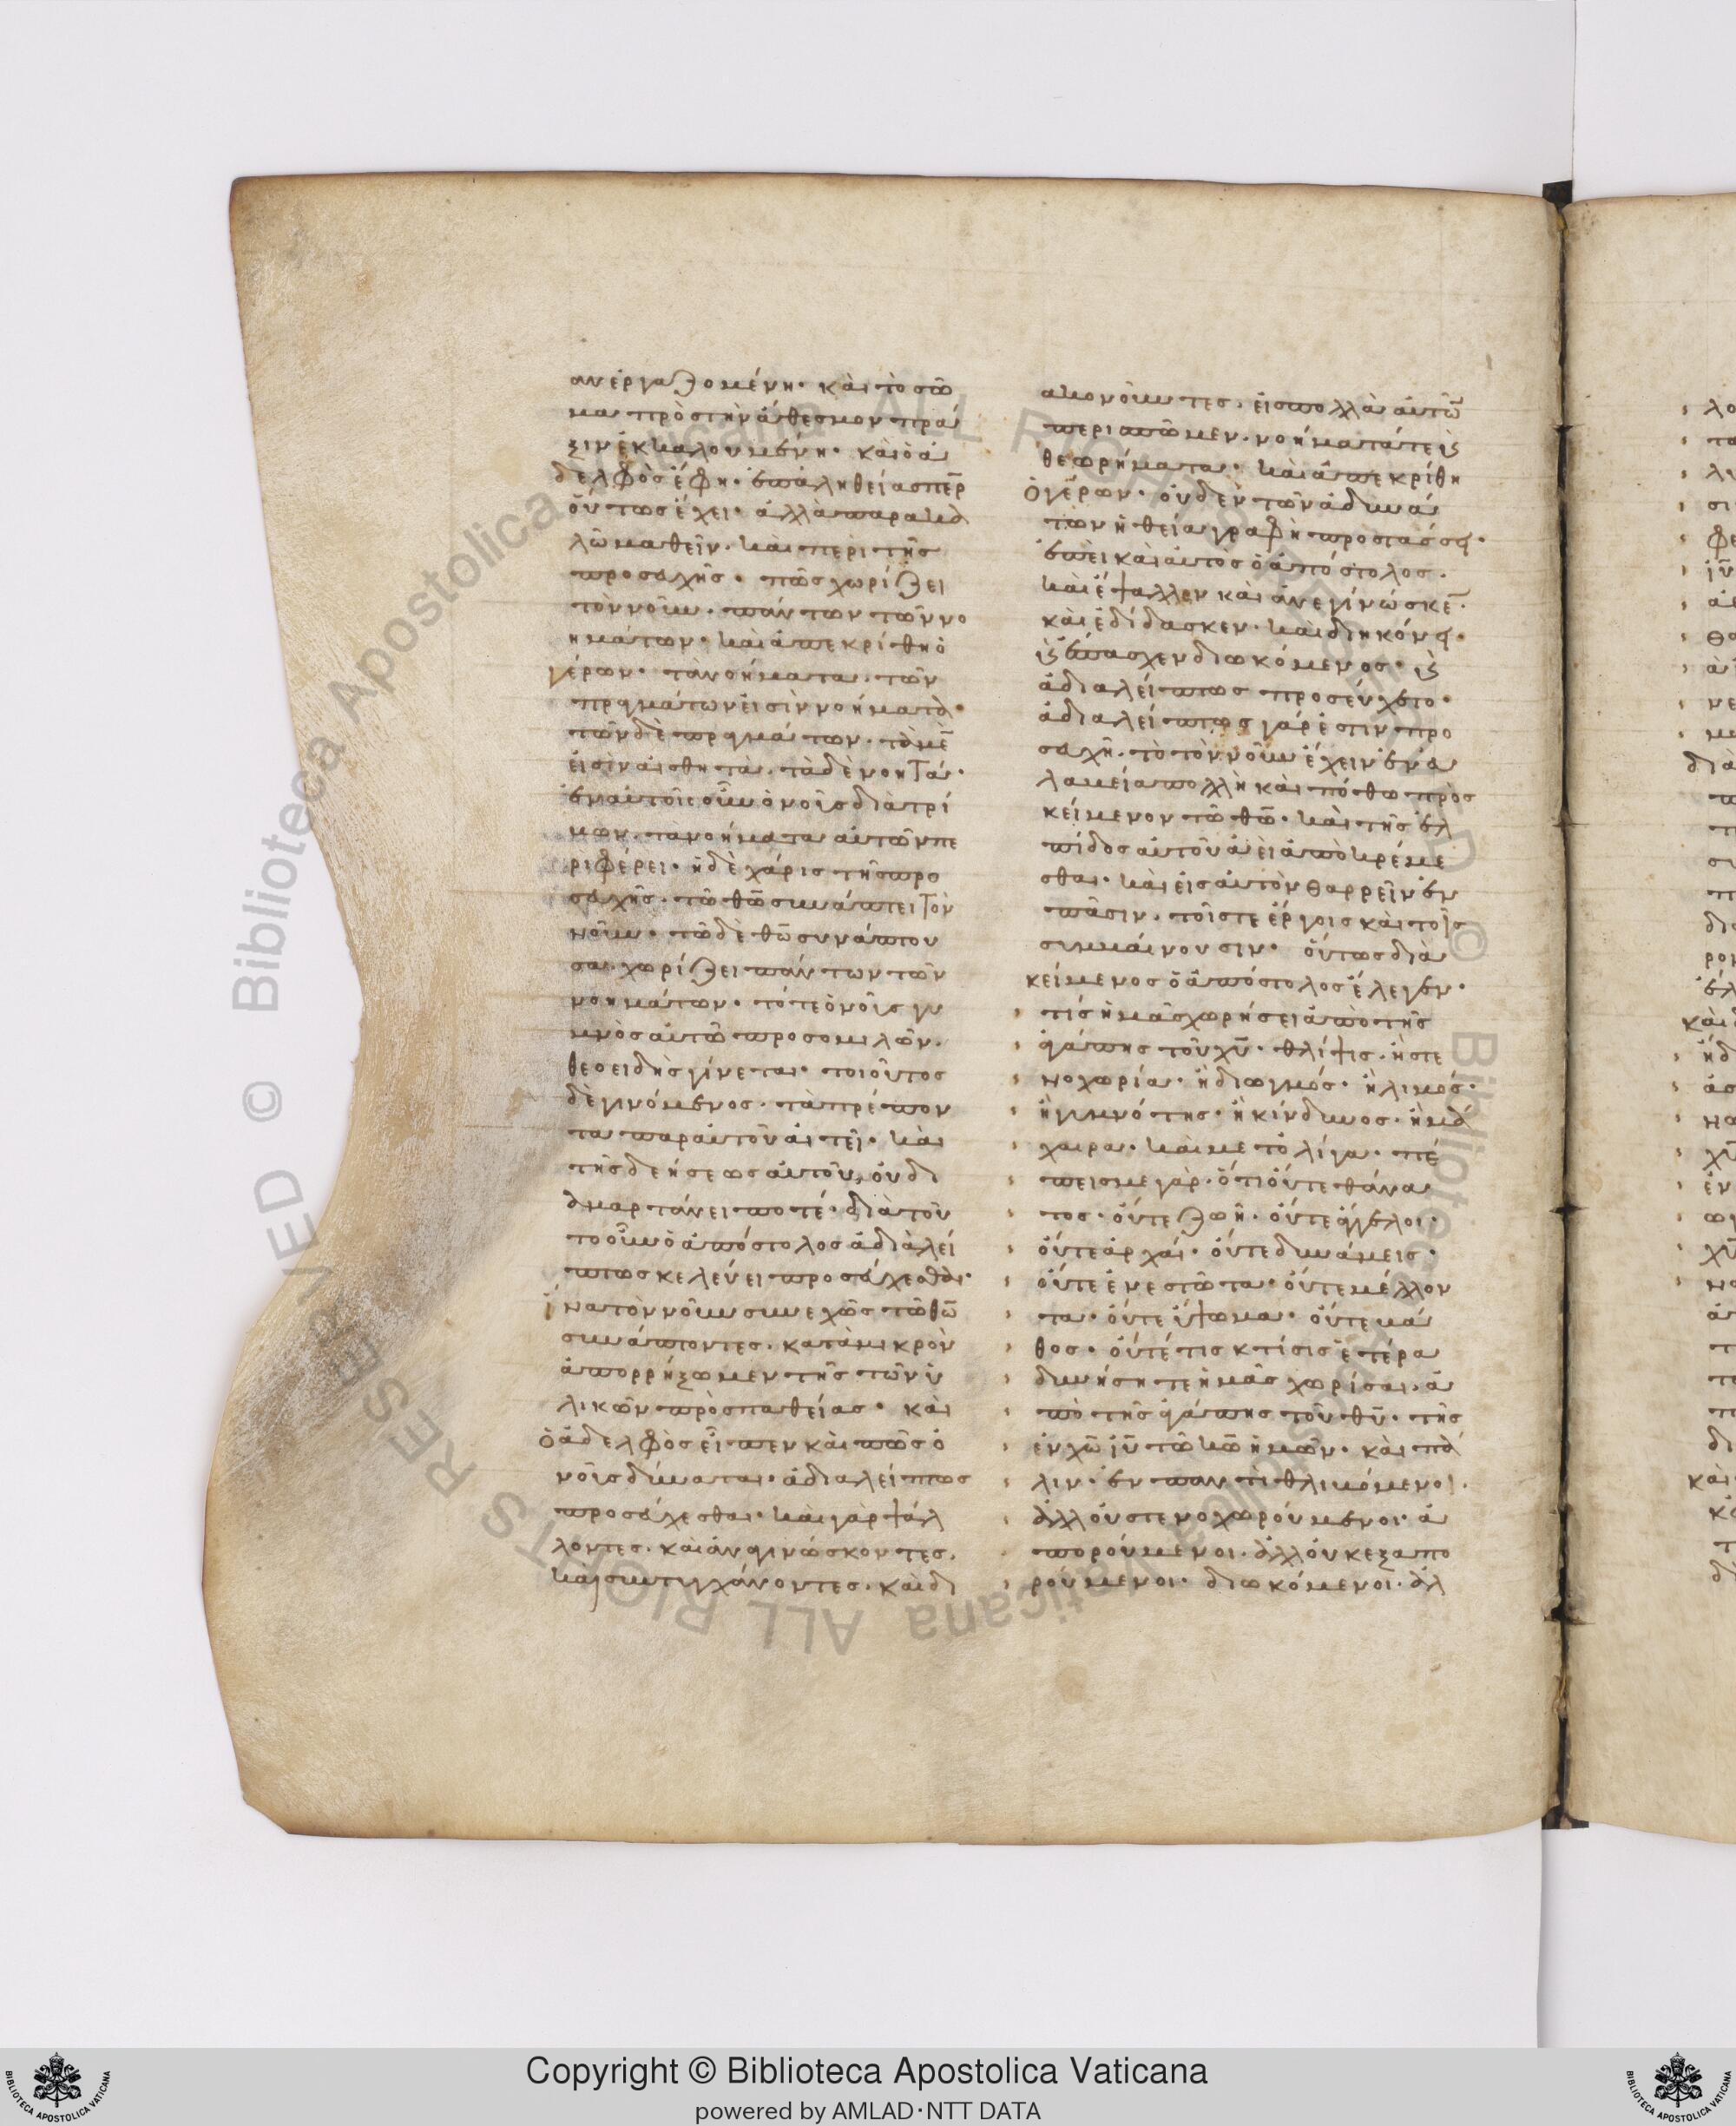 αν ἐργαζομένη· καὶ τὸ σῶ
μα πρὸς τὴν ἄθεσμον πρᾶ
ξιν ἐκκαλουμένη· καὶ ὁ ἀ
δελφὸς ἔφη· ἐπ ἀληθείας πε̅ρ
οὕτως ἔχει· ἀλλὰ παρακα
λῶ μαθεῖν· καὶ περὶ τῆς
προσευχῆς· πῶς χωρίζει
τὸν νοῦν· πάντων τῶν νο
ημάτων· καὶ ἀπεκρίθη ὁ
γέρων· τὰ νοήματα· τῶν
πραγμάτων εἰσὶν νοήματα·
τῶν δὲ πραγμάτων· τὰ με̅
εἰσὶν αἰσθητὰ· τὰ δὲ νοητά·
ἐν αὐτοῖς οὖν ὁ νοῦς διατρί
βων· τὰ νοήματα αὐτῶν πε
ριφέρει· ἡ δὲ χάρις τῆς προ
σευχῆς· τῶ θ̅ῶ συνάπτει τὸν
νοῦν· τῶ δὲ θ̅ῶ συνάπτου
σα· χωρίζει πάντων τῶν
νοημάτων· τότε ὁ νοῦς γυ
μνὸς αὐτῶ προσομιλῶν·
θεοειδὴς γίνεται· τοιοῦτος
δὲ γινόμενος· τὰ πρέπον
τα παρ αὐτοῦ αἰτεῖ· καὶ
τῆς δεήσεως αὐτοῦ, οὐ δι
αμαρτάνει ποτέ· διὰ τοῦ
το οὖν ὁ ἀπόστολος ἀδιαλεί
πτως κελεύει προσεύχεσθαι·
ἵνα τὸν νοῦν συνεχῶς τῶ θ̅ῶ
συνάπτοντες· κατὰ μικρὸν
ἀπορρήξωμεν τῆς τῶν ὑ
λικῶν προσπαθείας· καὶ
ὁ ἀδελφὸς εἶπεν καὶ πῶς ὁ
νοῦς δύναται· ἀδιαλείπτως
προσεύχεσθαι· καὶ γὰρ ψάλ
λοντες· καὶ ἀναγινώσκοντες·
καὶ συντυγχάνοντες· καὶ δι
ακονοῦντες· εἰς πολλὰ αὐτὸ̅
περισπῶμεν· νοήματά τε κ̀
θεωρήματα· καὶ ἀπεκρίθη
ὁ γέρων· οὐδὲν τῶν ἀδυνά
των ἡ θεία γραφὴ προστάσσει·
ἐπεὶ καὶ αὐτὸς ὁ ἀπόστολος·
καὶ ἔψαλλεν καὶ ἀνεγίνωσκε̅·
καὶ ἐδίδασκεν· καὶ διηκόνει·
κ̀ ἔπασχεν διωκόμενος· κ̀
ἀδιαλείπτως προσεύχετο·
ἀδιάλειπτος γάρ ἐστιν προ
σευχὴ· τὸ τὸν νοῦν ἔχειν ἐν εὐ
λαβεία πολλῆ καὶ πόθω προσ
κείμενον τῶ θ̅ῶ· καὶ τῆς ἐλ
πίδος αὐτοῦ ἀεὶ ἀποκρέμα
σθαι· καὶ εἰς αὐτὸν θαρρεῖν ἐν
πᾶσιν· τοῖς τε ἔργοις καὶ τοῖς
συμβαίνουσιν· οὕτως δια
κείμενος ὁ ἀπόστολος ἔλεγεν·
τίς ἡμᾶς χωρήσει ἀπὸ τῆς
ἀγάπης τοῦ χ̅υ̅· θλίψις· ἢ στε
νοχωρία· ἢ διωγμός· ἢ λιμός·
ἢ γυμνότης· ἢ κίνδυνος· ἢ μά
χαιρα· καὶ μετ ὀλίγα· πέ
πεισμε γὰρ· ὅτι οὔτε θάνα
τος· οὔτε ζωὴ· οὔτε ἄγγελοι·
οὔτε ἀρχαί· οὔτε δυνάμεις·
οὔτε ἐνεστῶτα· οὔτε μέλλον
τα· οὔτε ὕψωμα· οὔτε βά
θος· οὔτέ τις κτίσις ἑτέρα
δυνήσηται ἡμᾶς χωρίσαι· ἀ
πὸ τῆς ἀγάπης τοῦ θ̅υ̅· τῆς
ἐν χ̅ῶ ἰ̅υ̅ τῶ κ̅ῶ ἡμῶν· καὶ πά
λιν· ἐν παντὶ θλιβόμενοι·
ἀλλ οὐ στενοχωρούμενοι· ἀ
πορούμενοι· ἀλλ οὐκ εξαπο
ρούμενοι· διωκόμενοι· ἀλ
Copyright © Biblioteca Apostolica Vaticana
powered by AMLAD·NTT DATA